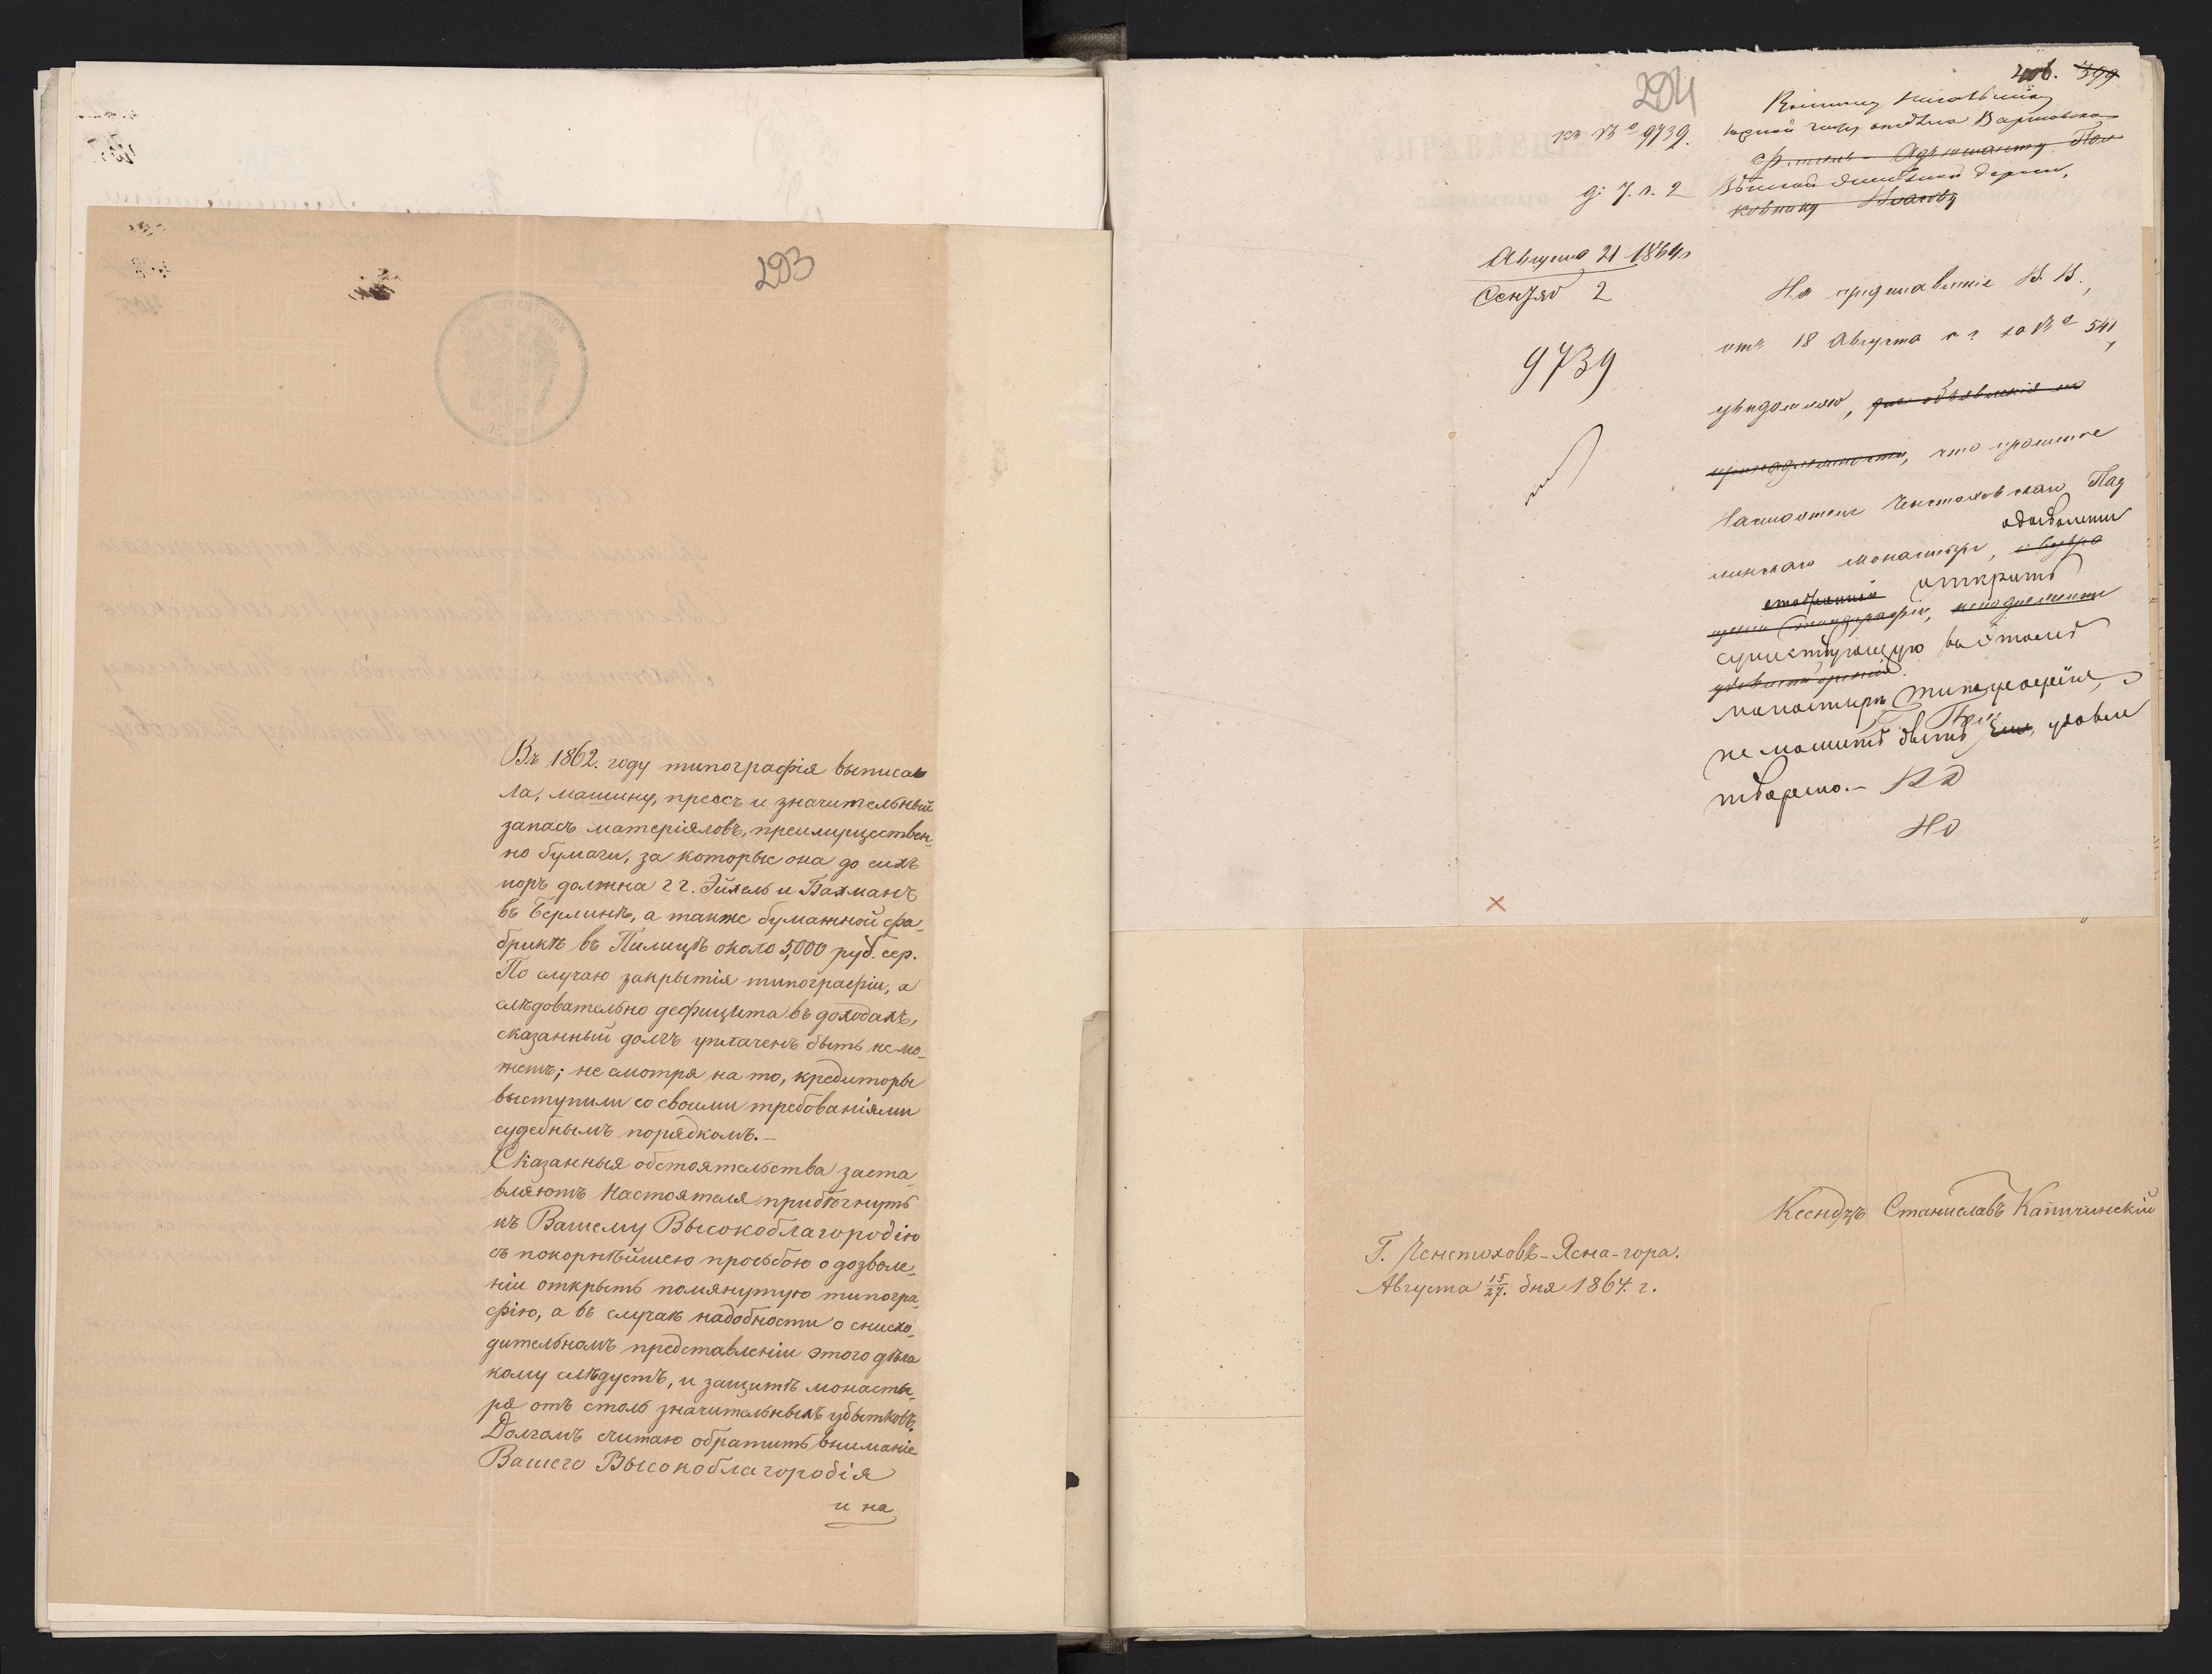 203
Въ 1862. году типографія выписа
ла, машину, прессъ и значительный
запасъ матеріяловъ, преимуществен-
но бумаги, за которые она до сихъ
поръ должна гг. Эйхель и Бахманъ
въ Берлинѣ, а также бумажной фа-
брикѣ въ Пилицѣ около 5,000 руб. сер.
По случаю закрытія типографіи, а
слѣдовательно дефицита въ доходахъ,
сказанный долгъ уплаченъ быть не мо-
жетъ; не смотря на то, кредиторы
выступили со своими требованіями
судебнымъ порядкомъ.—
Сказанныя обстоятельства заста-
вляютъ Настоятеля прибѣгнуть
къ Вашему Высокоблагородію
съ покорнѣйшею просьбою о дозволе-
ніи открыть помянутую типогра-
фію, а въ случаѣ надобности о снисхо-
дительномъ представленіи этого дѣла
кому слѣдуетъ, и защитѣ монасты-
ря отъ столь значительныхъ убытковъ.
Долгомъ считаю обратить вниманіе
Вашего Высокоблагородія
и на
204
406. 399
къ № 9739.
д: 7. л. 2
отдѣла Варшавско
Адъютанту Пол
ковнику Власову
Августа 21 1864
Сентяб 2
9739
На представленіе В. В.,
отъ 18 Августа с. г. за № 541,
увѣдомляю, для объявленія по
принадлежности, что прошеніе
Настоятеля Ченстоховскаго Пау
линскаго монастыря, о дозволеніи
открыть
типографіи,
существующую въ этомъ
монастырѣ типографію,
не можетъ быть удовле
творено.—
Ксендзъ Станиславъ Капичинскій
Г. Ченстоховъ-Ясна-гора.
Августа 15/27. дня 1864. г.